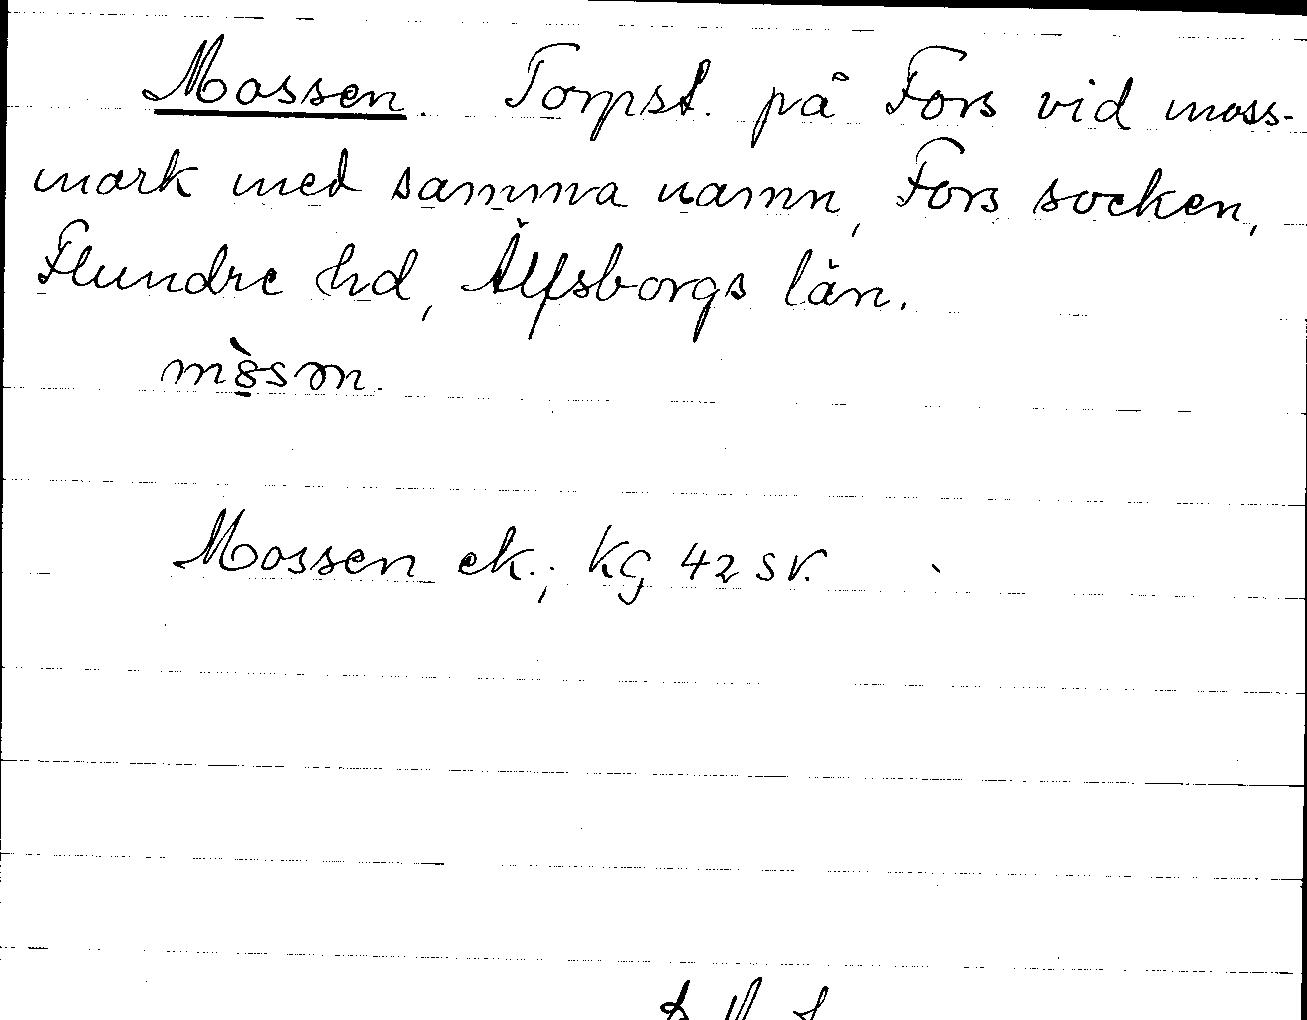 Mossen. Torpst. på Fors vid moss-
mark med samma namn, Fors socken,
Flundre hd, Älfsborgs län.
Mossen ek.; KG 42 SV.